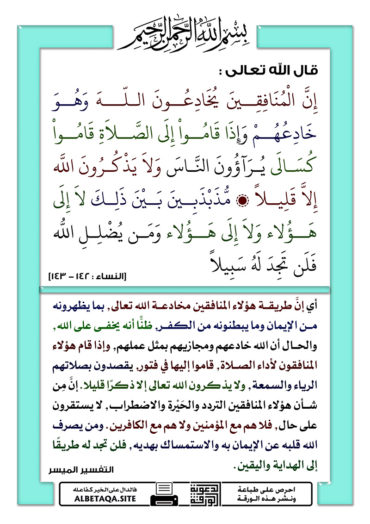 بِسْمِ اللَّهِ الرَّحْمَٰنِ الرَّحِيمِ
قال الله تعالى :
إِنَّ الْمُنَافِقِـــينَ يُخَادِعُـــونَ اللـــهَ وَهُـــوَ
خَادِعُهُـــمْ وَإِذَا قَامُـــواْ إِلَى الصَّـــلاَةِ قَامُـــواْ
كُسَـــالَى يُـــرَآؤُونَ النَّـــاسَ وَلاَ يَذْكُـــرُونَ اللّه
إِلاَّ قَلِيـــلاً ۞ مُّذَبْذَبِـــينَ بَـــيْنَ ذَلِـــكَ لاَ إِلَى
هَـــؤُلاء وَلاَ إِلَى هَـــؤُلاء وَمَـــن يُضْلِـــلِ اللّه
فَلَن تَجِدَ لَهُ سَبِيلاً
[النساء : ١٤٢ - ١٤٣]
أي إنَّ طريقـة هؤلاء المنافقين مخادعـة الله تعالى , بما يظهرونه
مـن الإيمان وما يبطنونه من الكفـر, ظنًّا أنه يخفـى على الله ,
والحـال أن الله خادعهم ومجازيهم بمثل عملهم , وإذا قام هؤلاء
المنافقون لأداء الصـلاة, قاموا إليها في فتور, يقصدون بصلاتهم
الرياء والسمعة , ولا يذكـرون الله تعالى إلا ذكـرًا قليلا . إنَّ مِن
شـأن هؤلاء المنافقين التردد والحَيْرة والاضطراب , لا يستقرون
على حال , فلا هم مع المؤمنين ولا هـم مع الكافرين . ومن يصرف
الله قلبه عن الإيمان به والاستمساك بهديه , فلن تجد له طريقًا
إلى الهداية واليقين .
التفسير الميسر
احرص على طباعة
ونشـر هـذه الـورقـة
الدعوية
الورقة
فالدال على الخير كفاعله
ALBETAQA.SITE